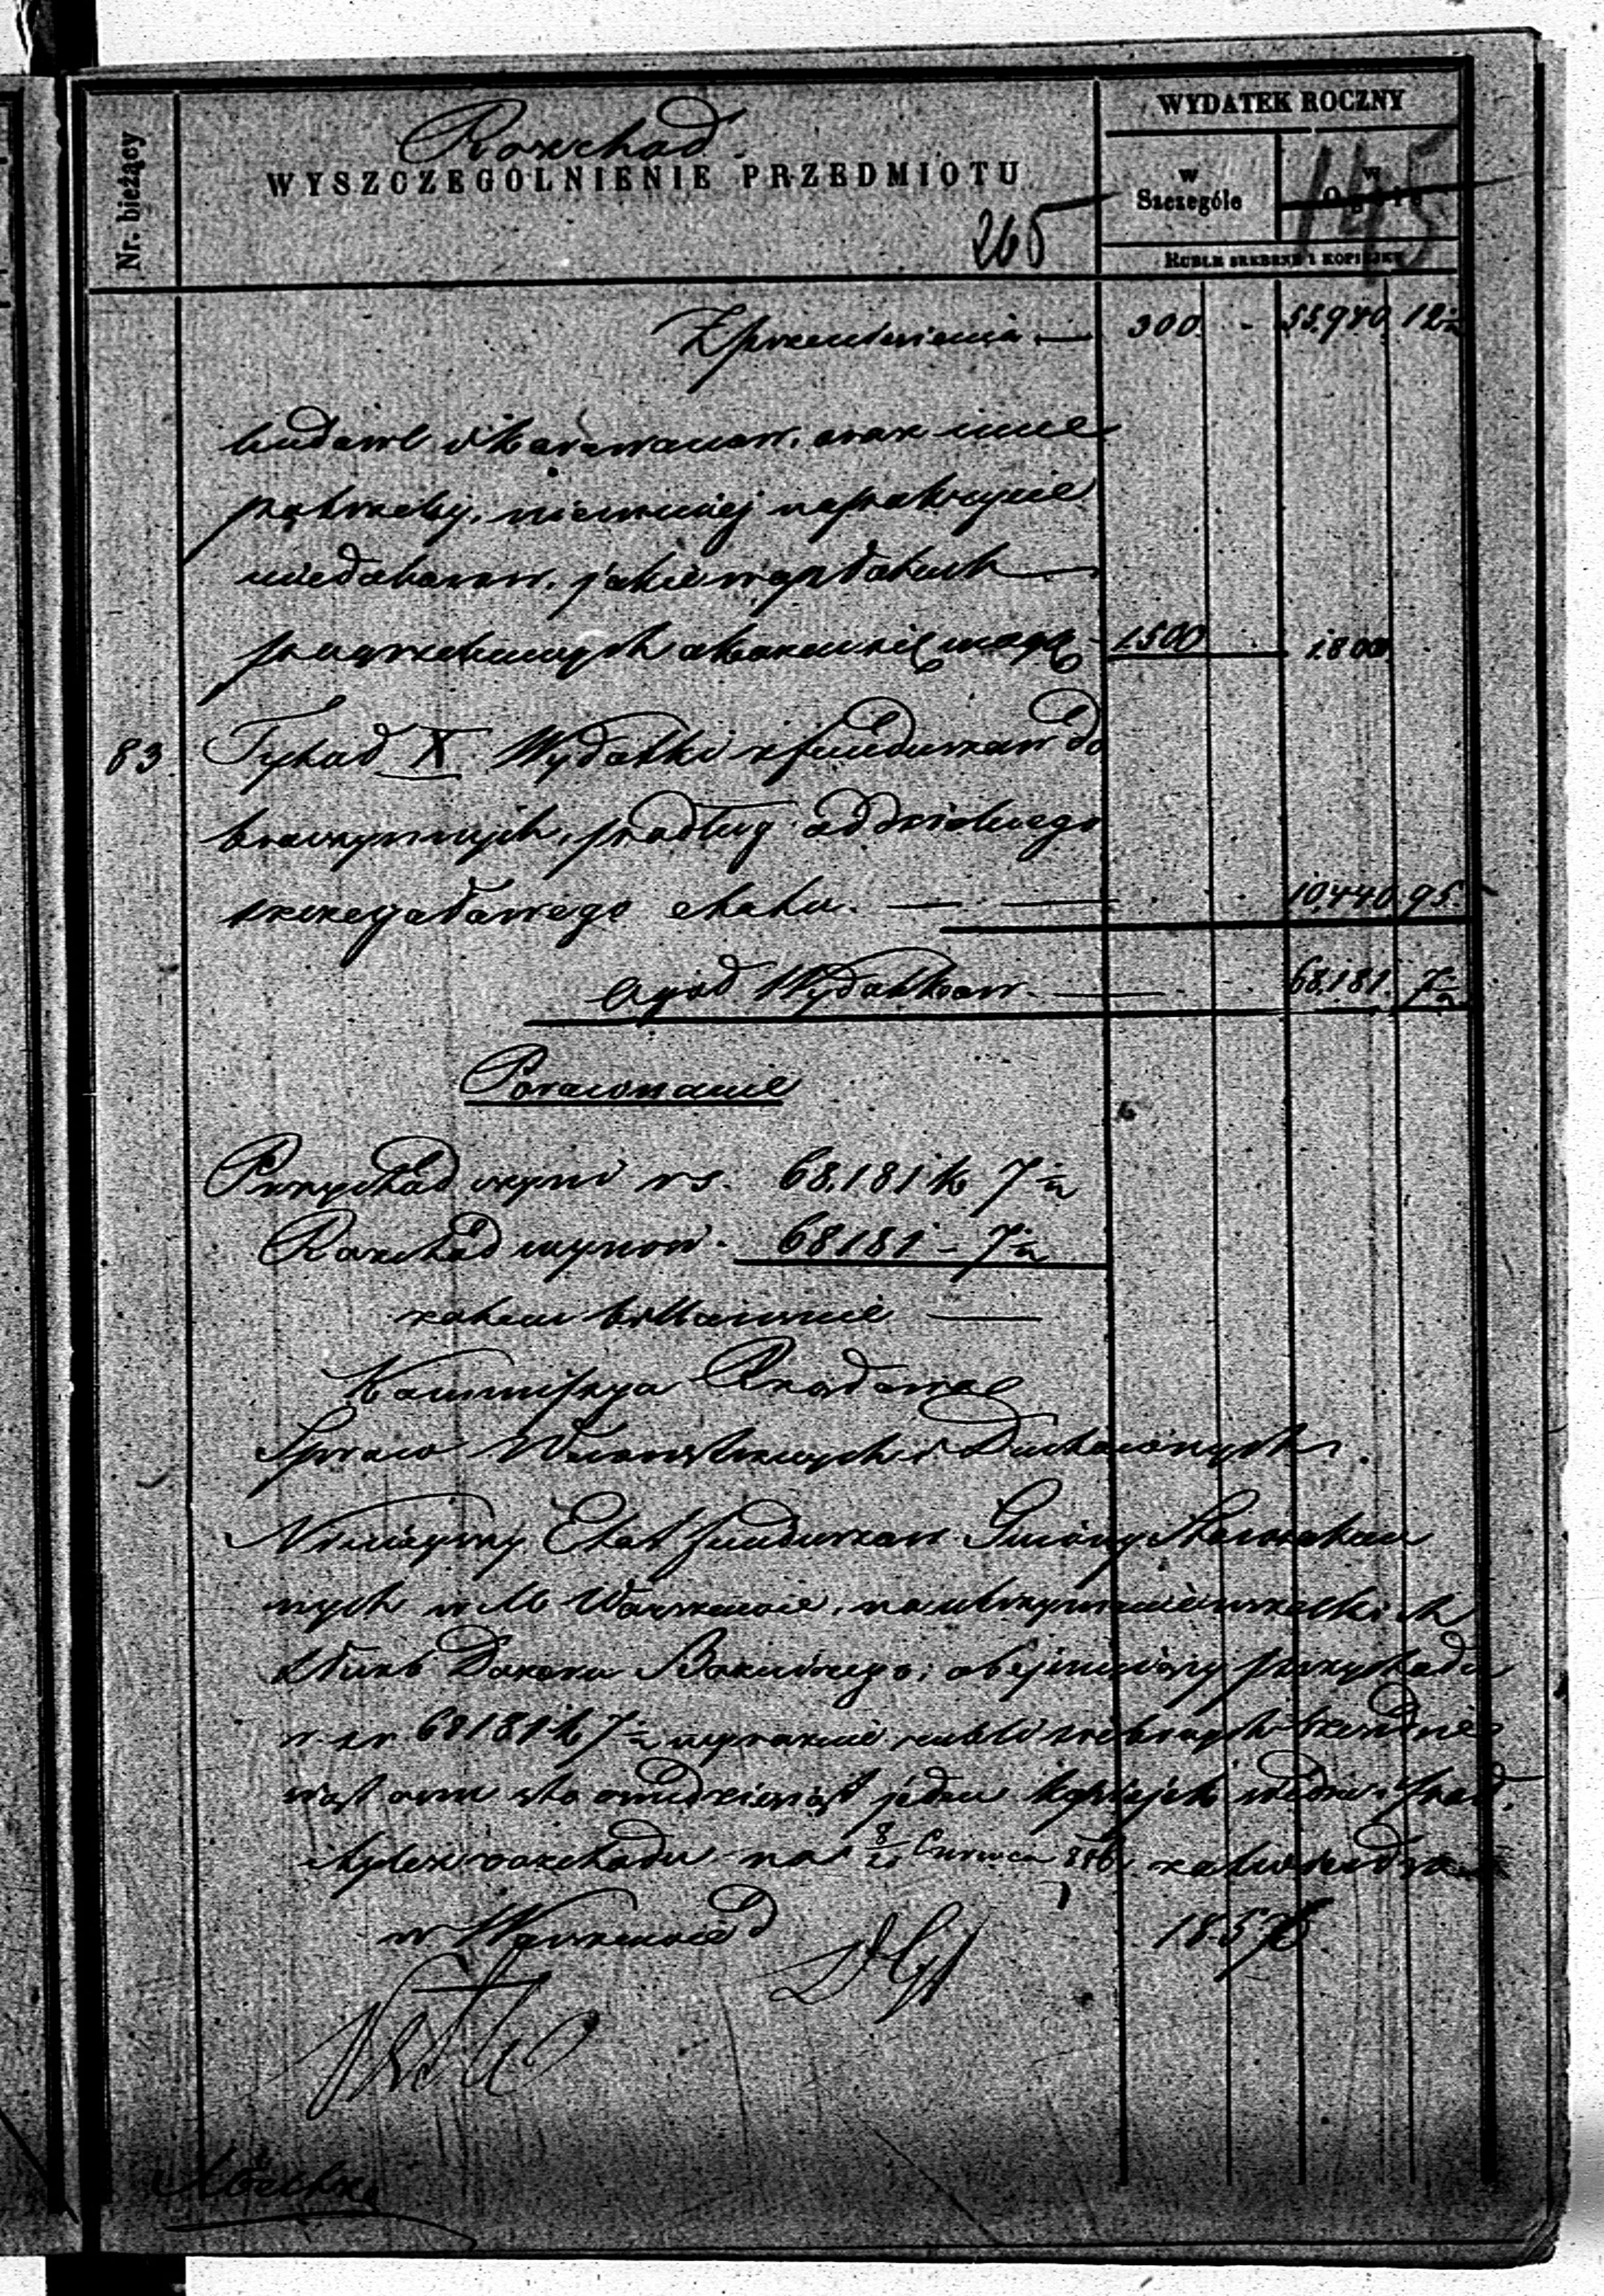 Nr. bieżący
Rozchod.
WYSZCZEGÓLNIENIE PRZEDMIOTU
265
WYDATEK ROCZNY
w Szczególe
w Ogóle
145
RUBLE SREBRNE I KOPIEJKI
Z przeniesienia — 300. - 55.940. 12½
budowl i karawanow, oraz inne
potrzeby, niemniej na pokrycie
niedoborow, jakie w opłatach
pogrzebowych okazać się mogą - 1500 . 1.800.
83. Tytuł X. Wydatki z funduszow do
broczynnych, podług oddzielnego
szczegołowego etatu. — — 10.440. 95.
Ogoł Wydatkow — 68.181. 7½
Porownanie
Przychod wynosi rs. 68.181 k 7½
Rozchod wynosi. 68181 - 7½
zatem billansuie —
Kommissya Rządowa
Spraw Wewnętrznych i Duchownych.
Ninieyszy Etat funduszow Gminy Starozakon
nych w M. Warszawie, na utrzymanie wszelkich
służb Dozoru Bożniczego; obejmuiący przychodu
rsr. 68181 k 7½ wyraźnie rubli srebrnych sześćdzie
siąt ośm sto ośmdziesiąt jeden kopiejek siedm i pół.
i tyleż rozchodu na 8/20 Czerwca zatwierdza
w Warszawie d 1857